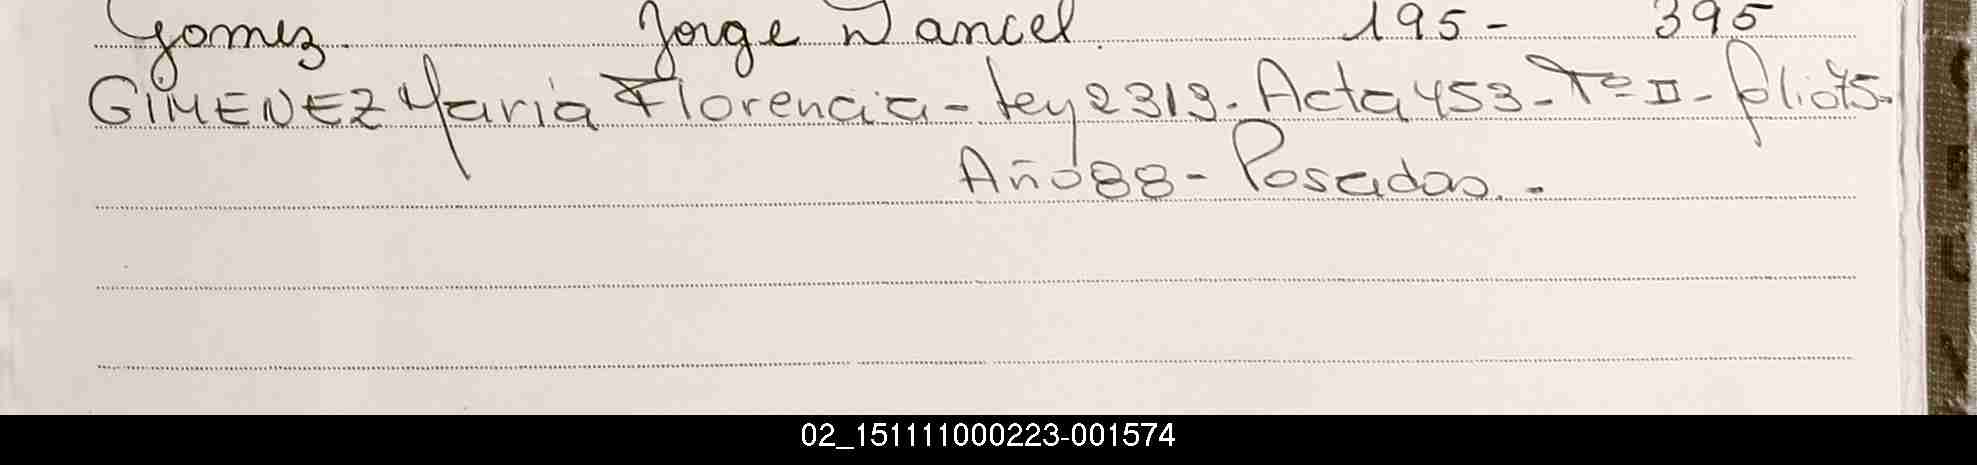 Gomez. Jorge Dancel. 195- 395
GIMENEZ Maria Florencia - Ley 2313. Acta 453 - Tº II - folio 75.
Año 88 - Posadas. -
02_151111000223-001574